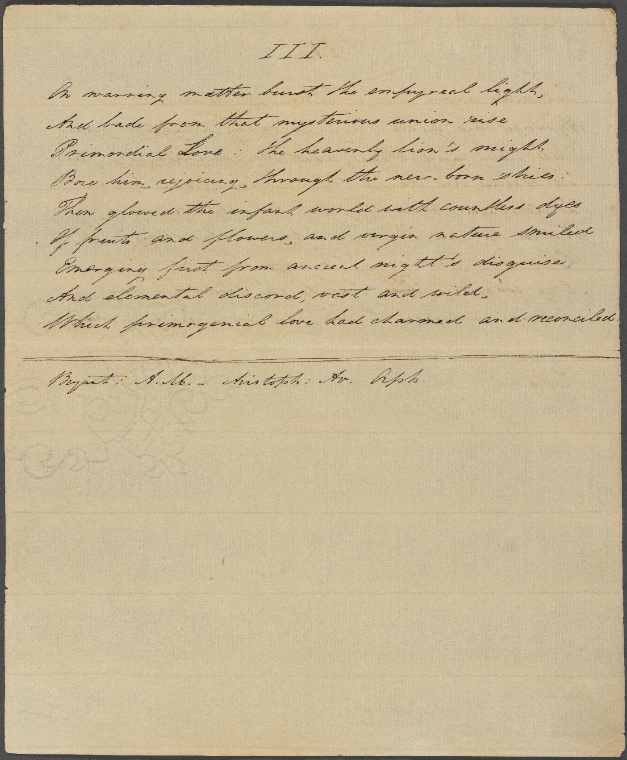 III.
On warring matter burst the empyreal light,
And bade from that mysterious union rise
Primordial Love: the heavenly lion's might
Bore him, rejoicing, through the new-born skies:
Then glowed the infant world with countless dyes
Of fruits and flowers, and virgin nature smiled
Emerging first from ancient night's disguise
And elemental discord, vast and wild,
Which primogenial love had charmed and reconciled
Bryant: A.M. – Aristoph: Av. Orph.